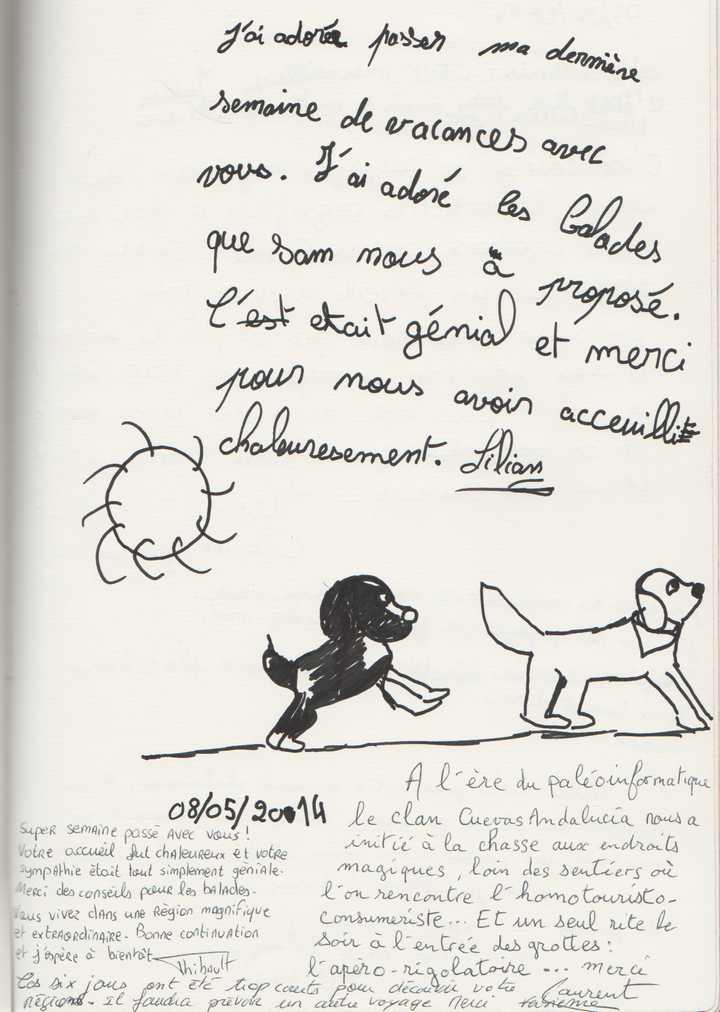 J'ai adorée passer ma dernière
semaine de vacances avec
vous. J'ai adoré les balades
que sam nous à proposé.
C'est etait génial et merci
pour nous avoir acceuilli
chaleuresement. Lilian
08/05/2014
Super semaine passé avec vous !
Votre accueil fut chaleureux et votre
sympathie était tout simplement géniale.
Merci des conseils pour les balades.
Vous vivez dans une région magnifique
et extraordinaire. Bonne continuation
et j'espère à bientôt
Thibault
A l'ère du paléoinformatique
le clan Cuevas Andalucía nous a
initié à la chasse aux endroits
magiques, loin des sentiers où
l'on rencontre l'homotouristo-
consumeriste... Et un seul rite le
soir à l'entrée des grottes :
l'apéro-rigolatoire ... merci
Laurent
Ces six jours ont été trop courts pour découvrir votre
région. Il faudra prévoir un autre voyage Merci Fabienne